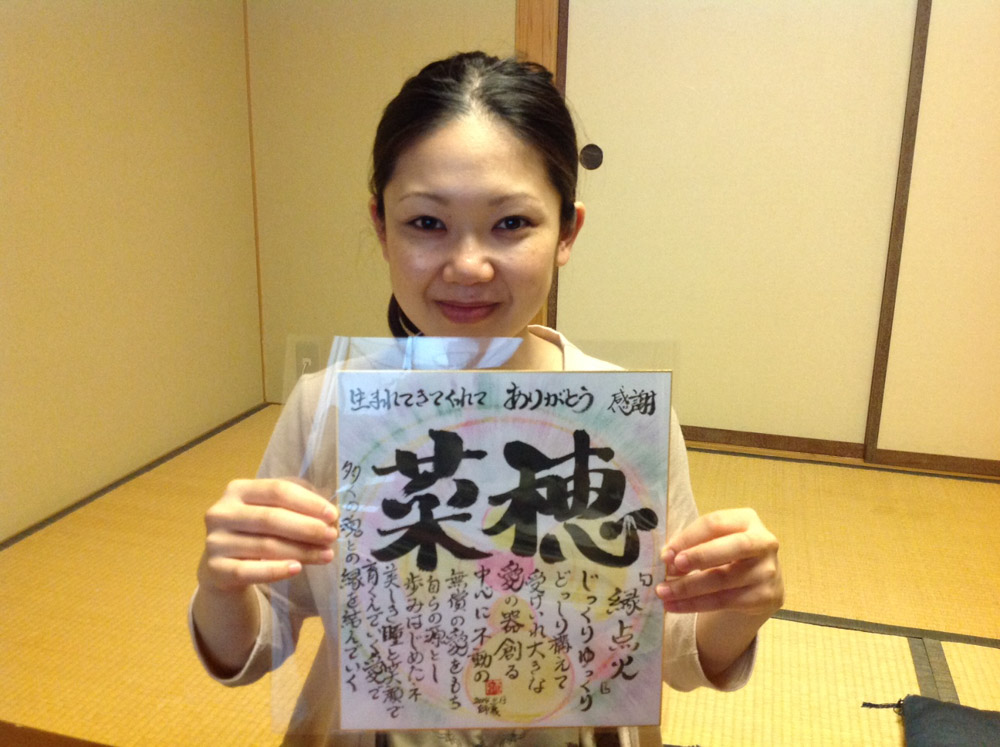 生まれてきてくれて ありがとう 感謝
菜穂
縁点火
じっくりゆっくり
どっしり構えて
受けいれ大きな
愛の器創る
中心に不動の
無償の愛をもち
自らの源とし
歩みはじめた
美しき瞳と笑顔で
育くんでいく愛で
多くの魂との縁を結んでいく